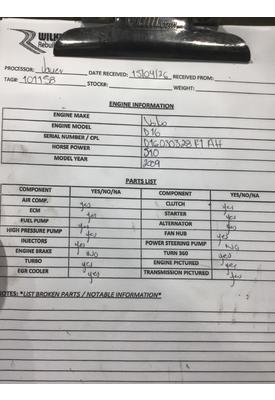 WILK
Rebuil
PROCESSOR: DATE RECEIVED: 15/04/26 RECEIVED FROM:
TAG#: 101158 STOCK#: WEIGHT:
ENGINE INFORMATION
ENGINE MAKE Volvo
ENGINE MODEL D16
SERIAL NUMBER / CPL
HORSE POWER 510
MODEL YEAR 2009
PARTS LIST
COMPONENT YES/NO/NA COMPONENT YES/NO/NA
AIR COMP. yes CLUTCH yes
ECM yes STARTER yes
FUEL PUMP yes ALTERNATOR yes
HIGH PRESSURE PUMP yes FAN HUB yes
INJECTORS yes POWER STEERING PUMP NO
ENGINE BRAKE NO TURN 360 yes
TURBO yes ENGINE PICTURED yes
EGR COOLER yes TRANSMISSION PICTURED yes
NOTES: *LIST BROKEN PARTS / NOTABLE INFORMATION*